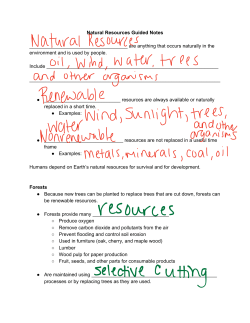 Natural Resources Guided Notes
Natural Resources are anything that occurs naturally in the
environment and is used by people.
Include oil, wind, water, trees
and other organisms
● Renewable resources are always available or naturally
replaced in a short time.
● Examples: Wind, Sunlight, trees,
water and other organisms
● Nonrenewable resources are not replaced in a useful time
frame
● Examples: metals, minerals, coal, oil
Humans depend on Earth's natural resources for survival and for development.
Forests
● Because new trees can be planted to replace trees that are cut down, forests can
be renewable resources.
● Forests provide many resources
○ Produce oxygen
○ Remove carbon dioxide and pollutants from the air
○ Prevent flooding and control soil erosion
○ Used in furniture (oak, cherry, and maple wood)
○ Lumber
○ Wood pulp for paper production
○ Fruit, seeds, and other parts for consumable products
● Are maintained using selective cutting
processes or by replacing trees as they are used.